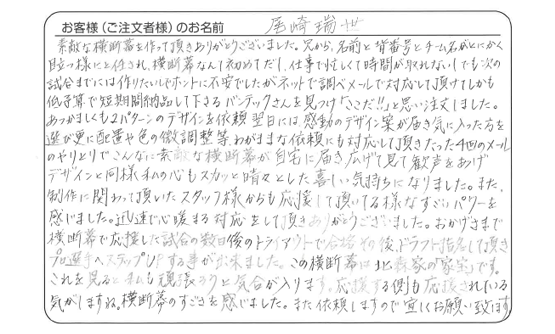 お客様（ご注文者様）のお名前 尾崎瑞世
素敵な横断幕を作って頂きありがとうございました。兄から、名前と背番号とチーム名がとにかく
目立つ様にと任され、横断幕なんて初めてだし、仕事も忙しくて時間が取れないしでも次の
試合までには作りたいしでホントに不安でしたがネットで調べメールで対応して頂けてしかも
低予算で短期間納品して下さるバンテックさんを見つけ「ここだ!!」と思い注文しました。
あつかましくも2パターンのデザインを依頼、翌日には感動のデザイン案が届き気に入った方を
選び更に配置や色の微調整等、わがままな依頼にも対応して頂きたった4回のメール
のやりとりでこんなに素敵な横断幕が自宅に届き広げて見て歓声をあげ
デザインと同様私の心もスカッと晴々とした喜しい気持ちになりました。また、
制作に関わって頂いたスタッフ様からも応援して頂いてる様なすごいパワーを
感じました。迅速で心暖まる対応をして頂きありがとうございました。おかげさまで
横断幕で応援した試合の数日後のトライアウトで合格、その後、ドラフト指名して頂き
プロ選手へステップUPする事が出来ました。この横断幕は我家の「家宝」です。
これを見ると私も頑張ろうと気合が入ります。応援する側も応援されている
気がしますね。横断幕のすごさを感じました。また依頼しますので宜しくお願い致します